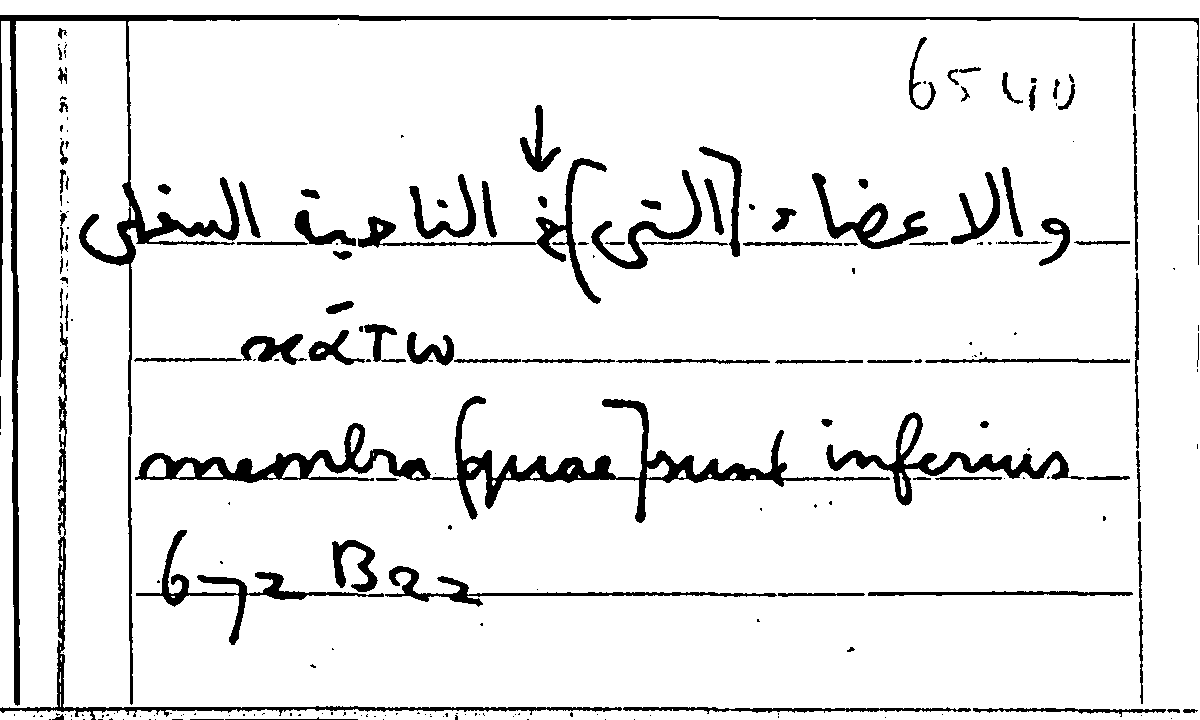 65410
↓
والاعضاء [التى] فى الناحية السفلى
κάτω
membra [quae] sunt inferius
672 B22